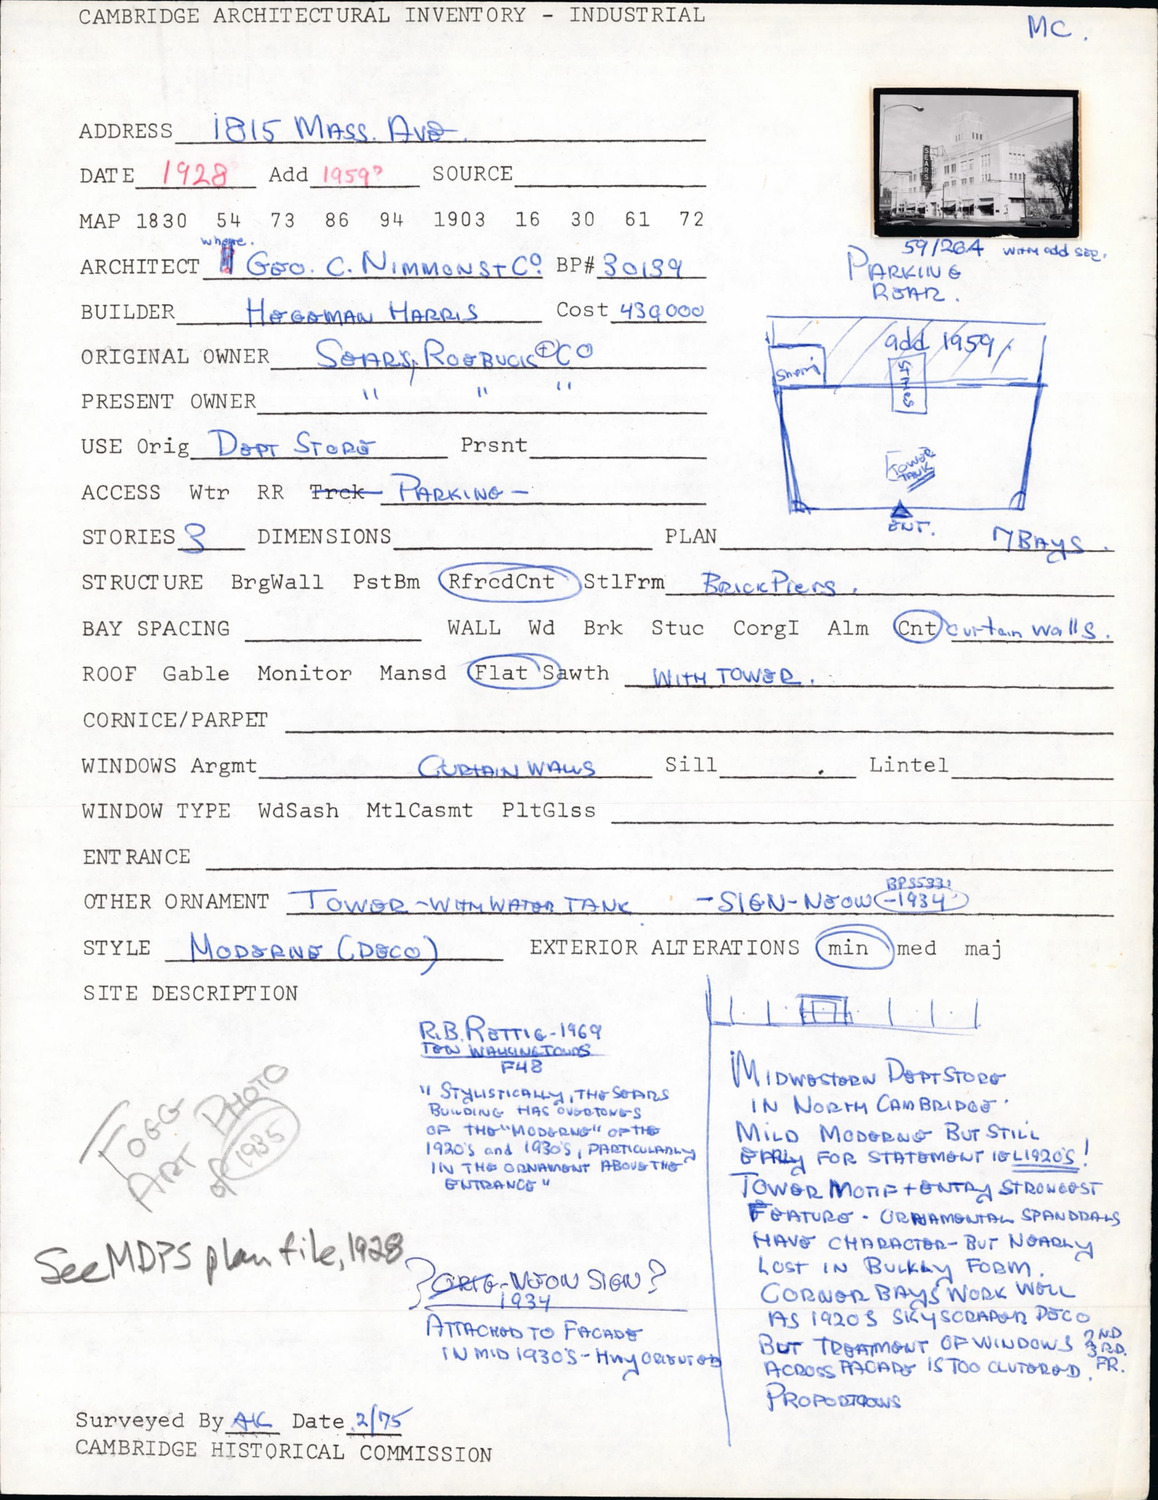 CAMBRIDGE ARCHITECTURAL INVENTORY - INDUSTRIAL
MC.
ADDRESS 1815 MASS. AVE.
DATE 1928 Add 1959? SOURCE
MAP 1830 54 73 86 94 1903 16 30 61 72
where.
ARCHITECT GEO. C. NIMMONS + CO. BP# 30139
BUILDER HEGEMAN HARRIS Cost 439000
ORIGINAL OWNER SEARS, ROEBUCK & CO
PRESENT OWNER " " "
USE Orig DEPT STORE Prsnt
ACCESS Wtr RR Trck PARKING -
STORIES 3 DIMENSIONS PLAN 7 BAYS.
STRUCTURE BrgWall PstBm RfrcdCnt StlFrm BRICK PIERS.
BAY SPACING WALL Wd Brk Stuc CorgI Alm Cnt curtain walls.
ROOF Gable Monitor Mansd Flat Sawth WITH TOWER.
CORNICE/PARPET
WINDOWS Argmt CURTAIN WALLS Sill . Lintel
WINDOW TYPE WdSash MtlCasmt PltGlss
ENTRANCE
BP35331
OTHER ORNAMENT TOWER - WITH WATER TANK - SIGN - NEON -1934
STYLE MODERNE (DECO) EXTERIOR ALTERATIONS min med maj
SITE DESCRIPTION
SEARS
59/26A WITH add SEE.
PARKING
REAR.
add 1959
TOWER
TANK
ENT.
R.B. RETTIG - 1969
TEN WALKING TOURS
F48
"STYLISTICALLY, THE SEARS
BUILDING HAS OVERTONES
OF THE "MODERNE" OF THE
1920'S and 1930'S, PARTICULARLY
IN THE ORNAMENT ABOVE THE
ENTRANCE"
FOGG
ART PHOTO
of 1935
See MDPS plan file, 1928
? ORIG - NEON SIGN?
1934
ATTACHED TO FACADE
IN MID 1930'S - HWY ORIENTED
MIDWESTERN DEPT STORE
IN NORTH CAMBRIDGE.
MILD MODERNE BUT STILL
EARLY FOR STATEMENT IE L1920'S!
TOWER MOTIF + ENTRY STRONGEST
FEATURE - ORNAMENTAL SPANDRALS
HAVE CHARACTER - BUT NEARLY
LOST IN BULKY FORM.
CORNER BAYS WORK WELL
AS 1920S SKYSCRAPER DECO
BUT TREATMENT OF WINDOWS 2ND 3RD.
ACROSS FACADE IS TOO CLUTERED.
PROPORTIONS
Surveyed By AK Date 2/75
CAMBRIDGE HISTORICAL COMMISSION